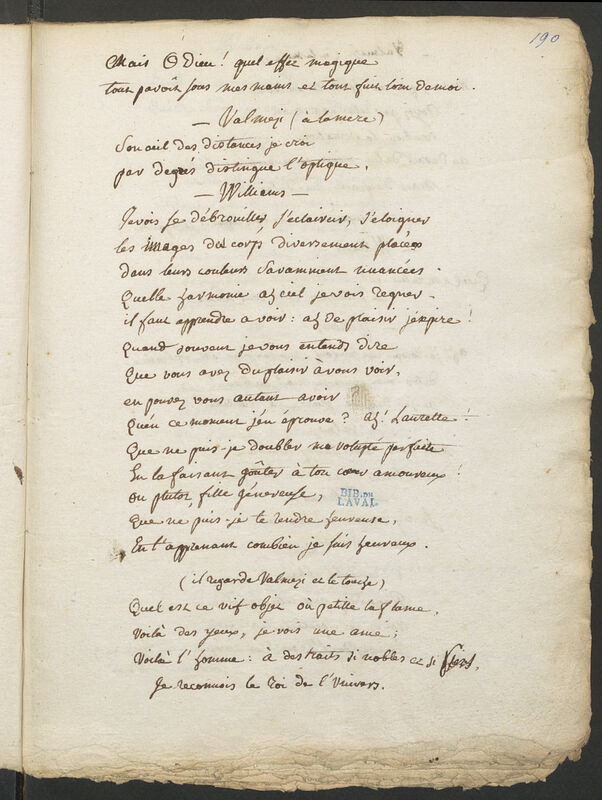 190
Mais O Dieu! quel effet magique
tout paroît sous mes mains et tout fuit loin de moi.
— Valmezi (à la mere)
Son oeil des distances je croi
par degrés distingue l'optique.
— Williams —
Je vois se débrouiller s'éclaircir, s'éloigner
les images des corps diversement placées
dans leurs couleurs savamment nuancées.
Quelle harmonie ah ciel je vois regner
il faut apprendre a voir: ah de plaisir j'éxpire!
Quand souvent je vous entends dire
Que vous avez du plaisir à vous voir,
en pouvez vous autant avoir
Qu'en ce moment j'en éprouve? ah! Laurette!
Que ne puis-je doubler ma volupté parfaite
En la faisant goûter à ton coeur amoureux!
ou plutot, fille génereuse,
BIB. DE
LAVAL.
Que ne puis-je te rendre heureuse,
En t'apprenant combien je suis heureux.
(il regarde Valmezi et le touche)
Quel est ce vif objet où petille la flame,
Voilà des yeux, je vois une ame;
Voilà l'homme: à des traits si nobles et si fiers,
Je reconnois le Roi de l'Univers.